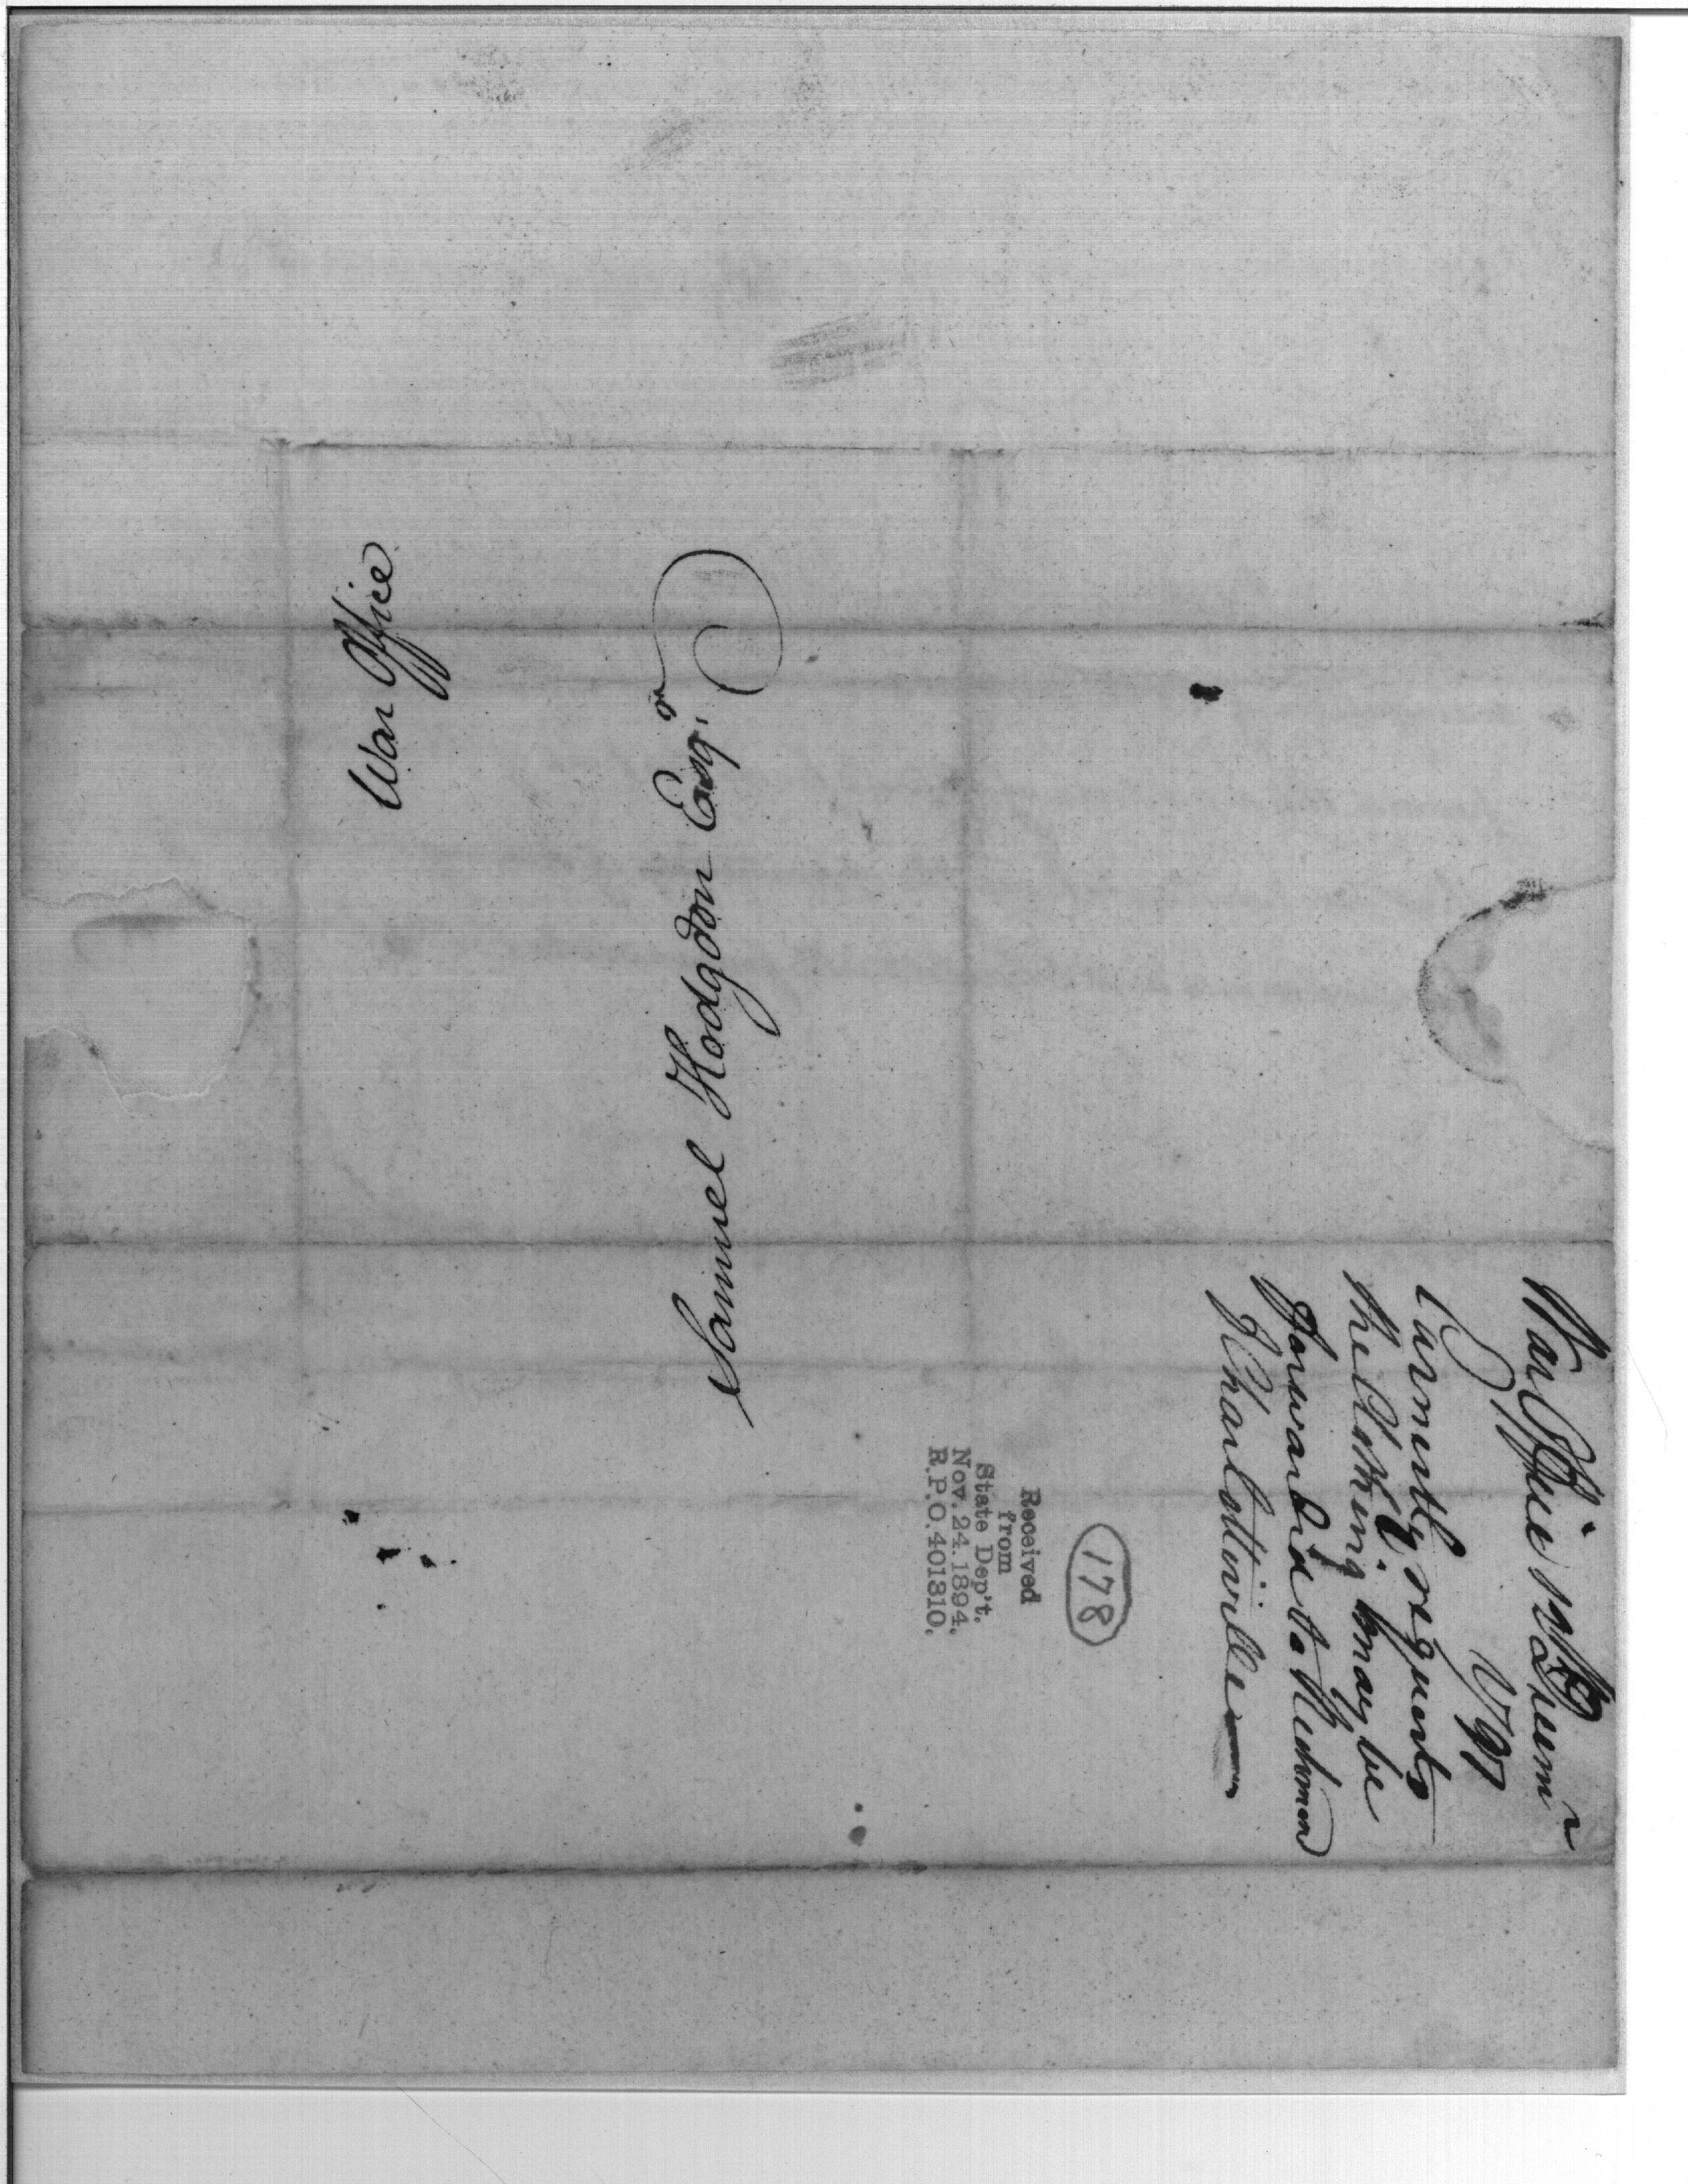 War Office
Samuel Hodgdon Esqr.
War Office
1797
Earnestly requests
the Clothing may be
forwarded to Richmond
& Charlottsville
178
Received
from
State Dep't.
Nov. 24. 1894.
R.P.O. 401310.